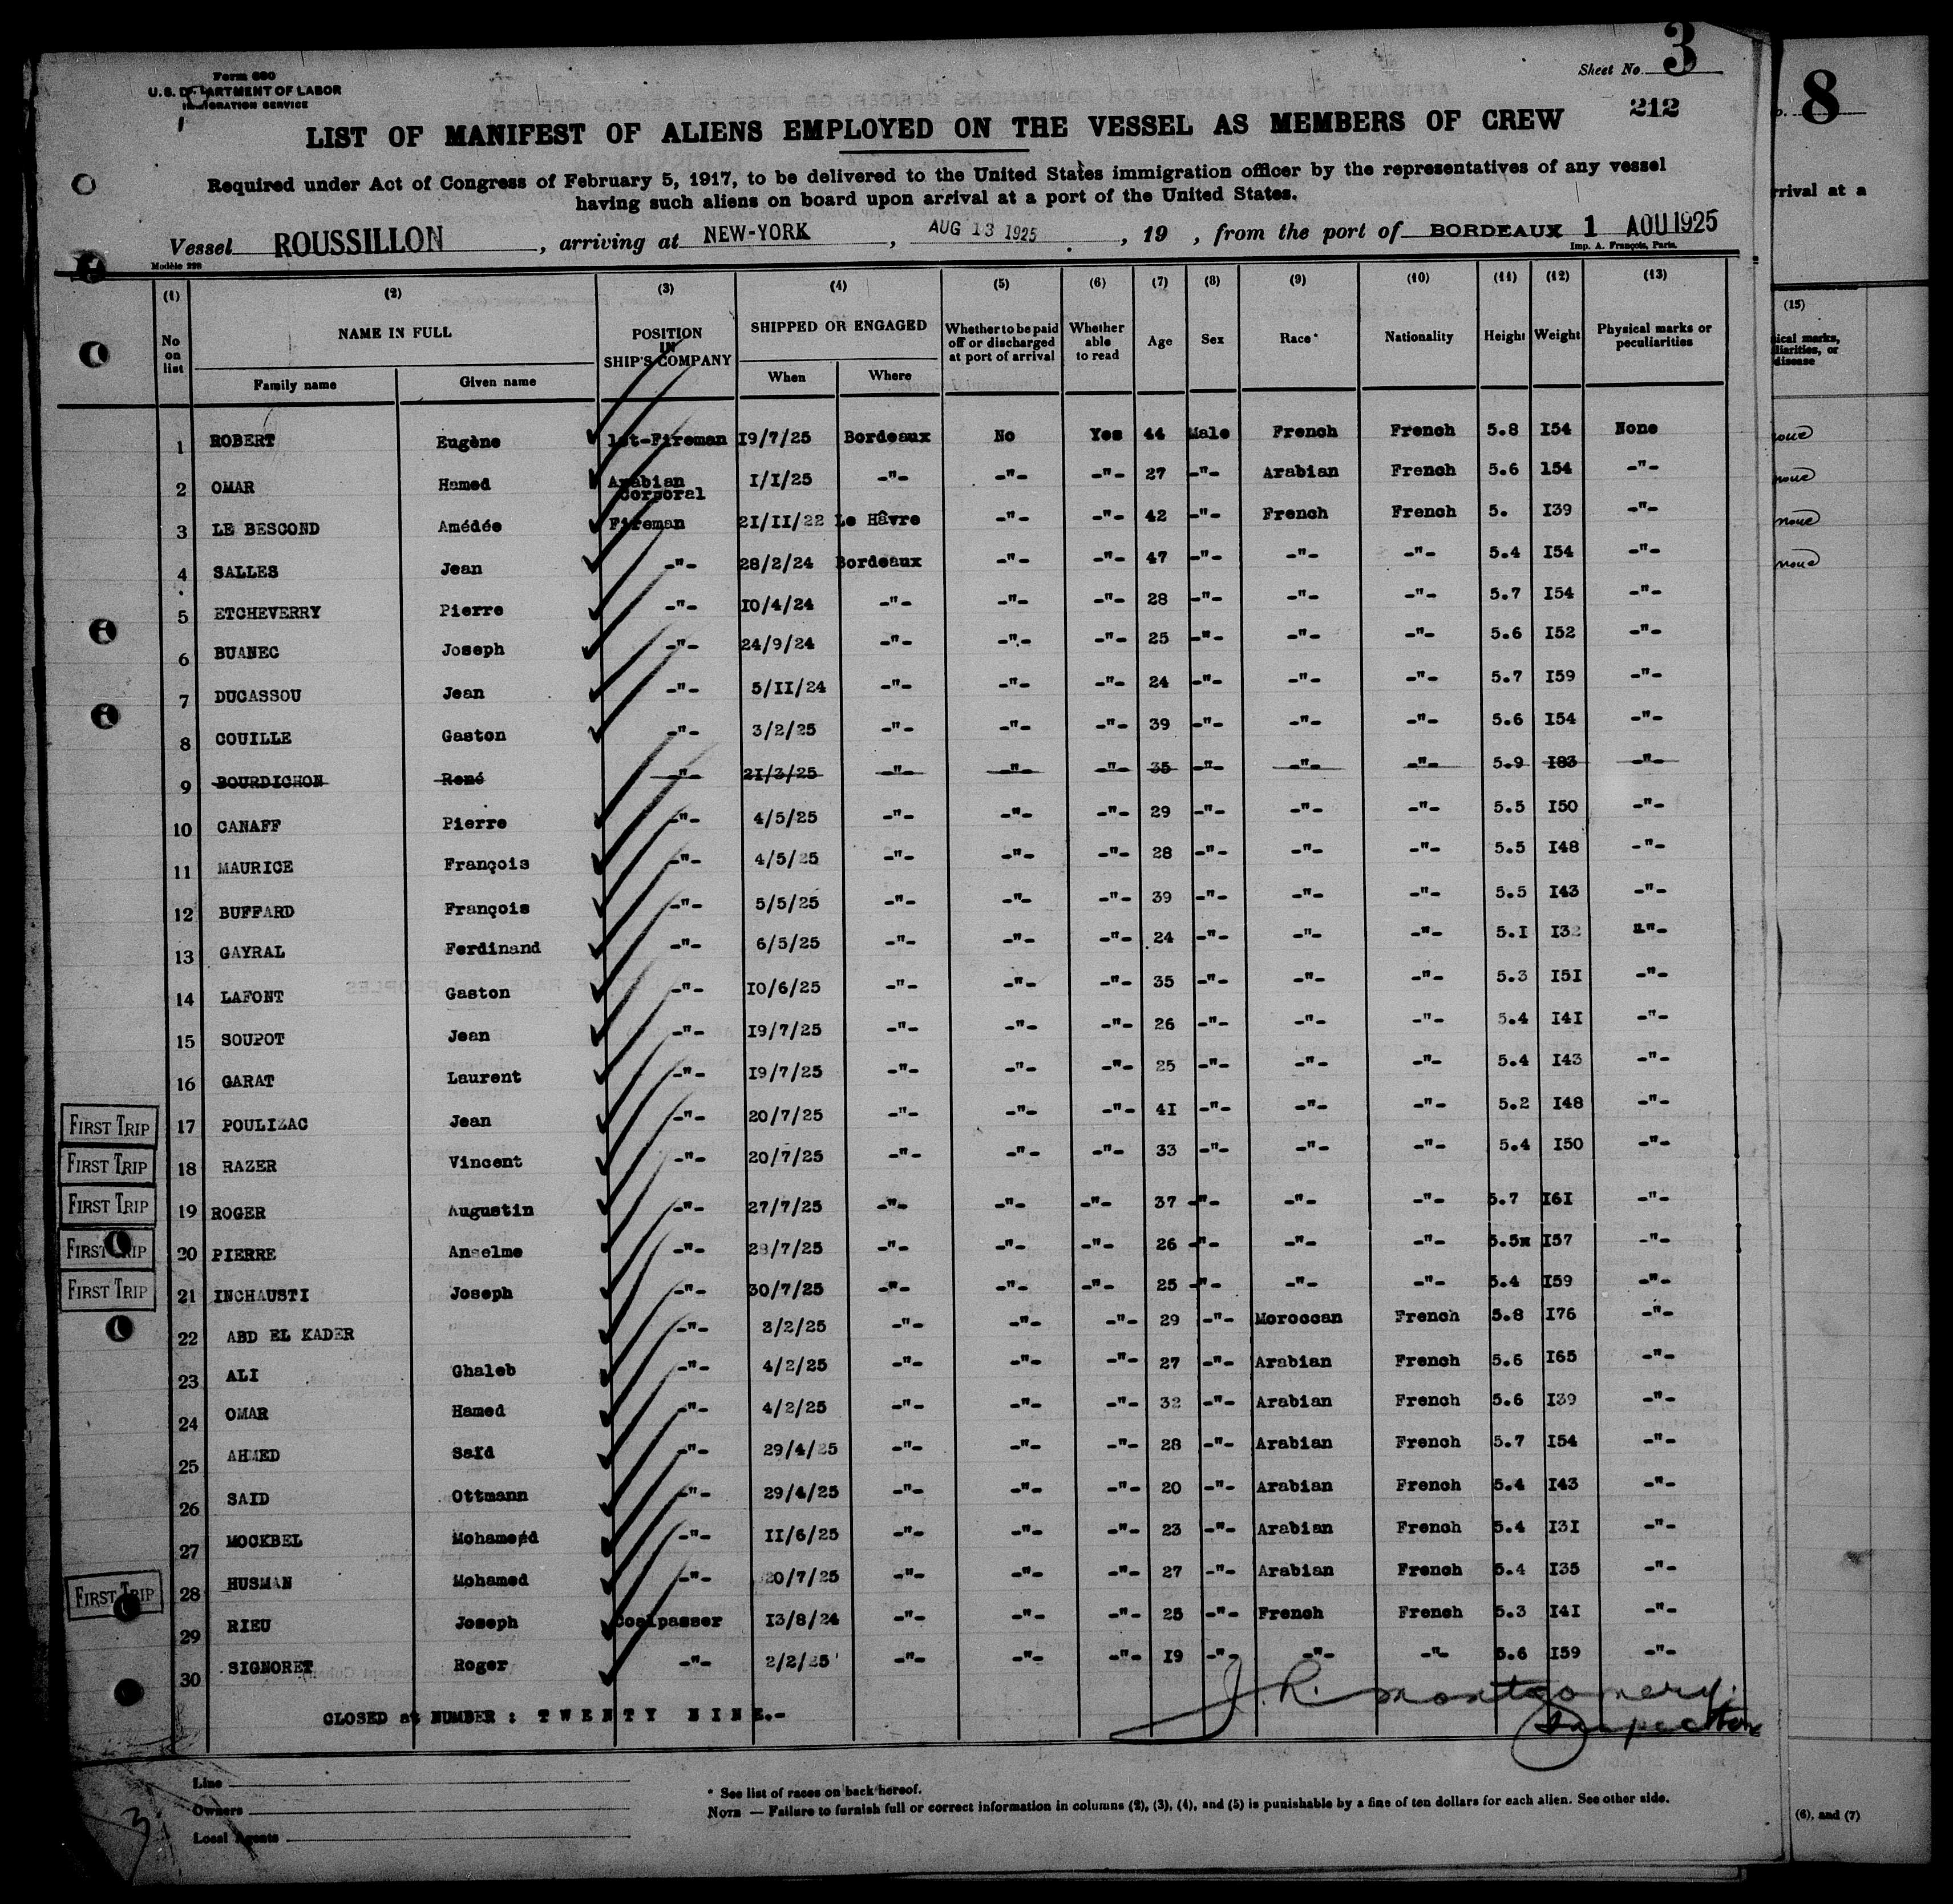 Sheet No. 3
212
Form 680
U. S. DEPARTMENT OF LABOR
IMMIGRATION SERVICE
LIST OF MANIFEST OF ALIENS EMPLOYED ON THE VESSEL AS MEMBERS OF CREW
Required under Act of Congress of February 5, 1917, to be delivered to the United States immigration officer by the representatives of any vessel
having such aliens on board upon arrival at a port of the United States.
Vessel ROUSSILLON, arriving at NEW-YORK, AUG 13 1925, 19 , from the port of BORDEAUX 1 AOU 1925
Modèle 228
Imp. A. François, Paris.
(1) (2) (3) (4) (5) (6) (7) (8) (9) (10) (11) (12) (13)
No on list NAME IN FULL POSITION IN SHIP'S COMPANY SHIPPED OR ENGAGED Whether to be paid off or discharged at port of arrival Whether able to read Age Sex Race* Nationality Height Weight Physical marks or peculiarities
Family name Given name When Where
1 ROBERT Eugène 1st-Fireman 19/7/25 Bordeaux No Yes 44 Male French French 5.8 I54 None
2 OMAR Hamed Arabian Corporal I/I/25 -"- -"- -"- 27 -"- Arabian French 5.6 154 -"-
3 LE BESCOND Amédée Fireman 21/II/22 Le Hâvre -"- -"- 42 -"- French French 5. I39 -"-
4 SALLES Jean -"- 28/2/24 Bordeaux -"- -"- 47 -"- -"- -"- 5.4 I54 -"-
5 ETCHEVERRY Pierre -"- 10/4/24 -"- -"- -"- 28 -"- -"- -"- 5.7 I54 -"-
6 BUANEC Joseph -"- 24/9/24 -"- -"- -"- 25 -"- -"- -"- 5.6 I52 -"-
7 DUCASSOU Jean -"- 5/II/24 -"- -"- -"- 24 -"- -"- -"- 5.7 I59 -"-
8 COUILLE Gaston -"- 3/2/25 -"- -"- -"- 39 -"- -"- -"- 5.6 I54 -"-
9 BOURDICHON René -"- 21/3/25 -"- -"- -"- 35 -"- -"- -"- 5.9 I83 -"-
10 CANAFF Pierre -"- 4/5/25 -"- -"- -"- 29 -"- -"- -"- 5.5 I50 -"-
11 MAURICE François -"- 4/5/25 -"- -"- -"- 28 -"- -"- -"- 5.5 I48 -"-
12 BUFFARD François -"- 5/5/25 -"- -"- -"- 39 -"- -"- -"- 5.5 I43 -"-
13 GAYRAL Ferdinand -"- 6/5/25 -"- -"- -"- 24 -"- -"- -"- 5.I I32 -"-
14 LAFONT Gaston -"- 10/6/25 -"- -"- -"- 35 -"- -"- -"- 5.3 I5I -"-
15 SOUPOT Jean -"- 19/7/25 -"- -"- -"- 26 -"- -"- -"- 5.4 I4I -"-
16 GARAT Laurent -"- 19/7/25 -"- -"- -"- 25 -"- -"- -"- 5.4 I43 -"-
FIRST TRIP 17 POULIZAC Jean -"- 20/7/25 -"- -"- -"- 4I -"- -"- -"- 5.2 I48 -"-
FIRST TRIP 18 RAZER Vincent -"- 20/7/25 -"- -"- -"- 33 -"- -"- -"- 5.4 I50 -"-
FIRST TRIP 19 ROGER Augustin -"- 27/7/25 -"- -"- -"- 37 -"- -"- -"- 5.7 I6I -"-
FIRST TRIP 20 PIERRE Anselme -"- 28/7/25 -"- -"- -"- 26 -"- -"- -"- 5.5x I57 -"-
FIRST TRIP 21 INCHAUSTI Joseph -"- 30/7/25 -"- -"- -"- 25 -"- -"- -"- 5.4 I59 -"-
22 ABD EL KADER -"- 2/2/25 -"- -"- -"- 29 -"- Moroccan French 5.8 I76 -"-
23 ALI Ghaleb -"- 4/2/25 -"- -"- -"- 27 -"- Arabian French 5.6 I65 -"-
24 OMAR Hamed -"- 4/2/25 -"- -"- -"- 32 -"- Arabian French 5.6 I39 -"-
25 AHMED Saïd -"- 29/4/25 -"- -"- -"- 28 -"- Arabian French 5.7 I54 -"-
26 SAID Ottmann -"- 29/4/25 -"- -"- -"- 20 -"- Arabian French 5.4 I43 -"-
27 MOCKBEL Mohameed -"- II/6/25 -"- -"- -"- 23 -"- Arabian French 5.4 I3I -"-
FIRST TRIP 28 HUSMAN Mohamed -"- 20/7/25 -"- -"- -"- 27 -"- Arabian French 5.4 I35 -"-
29 RIEU Joseph Coalpasser 13/8/24 -"- -"- -"- 25 -"- French French 5.3 I4I -"-
30 SIGNORET Roger -"- 2/2/25 -"- -"- -"- 19 -"- -"- -"- 5.6 I59 -"-
CLOSED at NUMBER : TWENTY NINE.-
J. R. Montgomery.
Inspector
Line
Owners
Local Agents
* See list of races on back hereof.
NOTE — Failure to furnish full or correct information in columns (2), (3), (4), and (5) is punishable by a fine of ten dollars for each alien. See other side.
3
8
rrival at a
(15)
ical marks,
liarities, or
disease
none
none
none
none
(6), and (7)